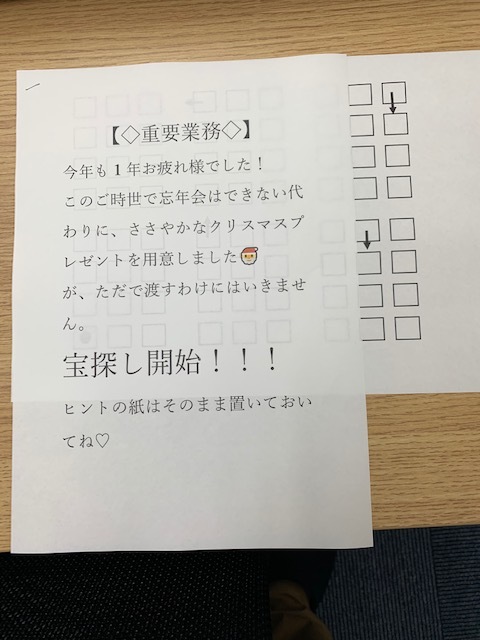 【◇重要業務◇】
今年も1年お疲れ様でした！
このご時世で忘年会はできない代
わりに、ささやかなクリスマスプ
レゼントを用意しました🎅
が、ただで渡すわけにはいきませ
ん。
宝探し開始！！！
ヒントの紙はそのまま置いておい
てね♡